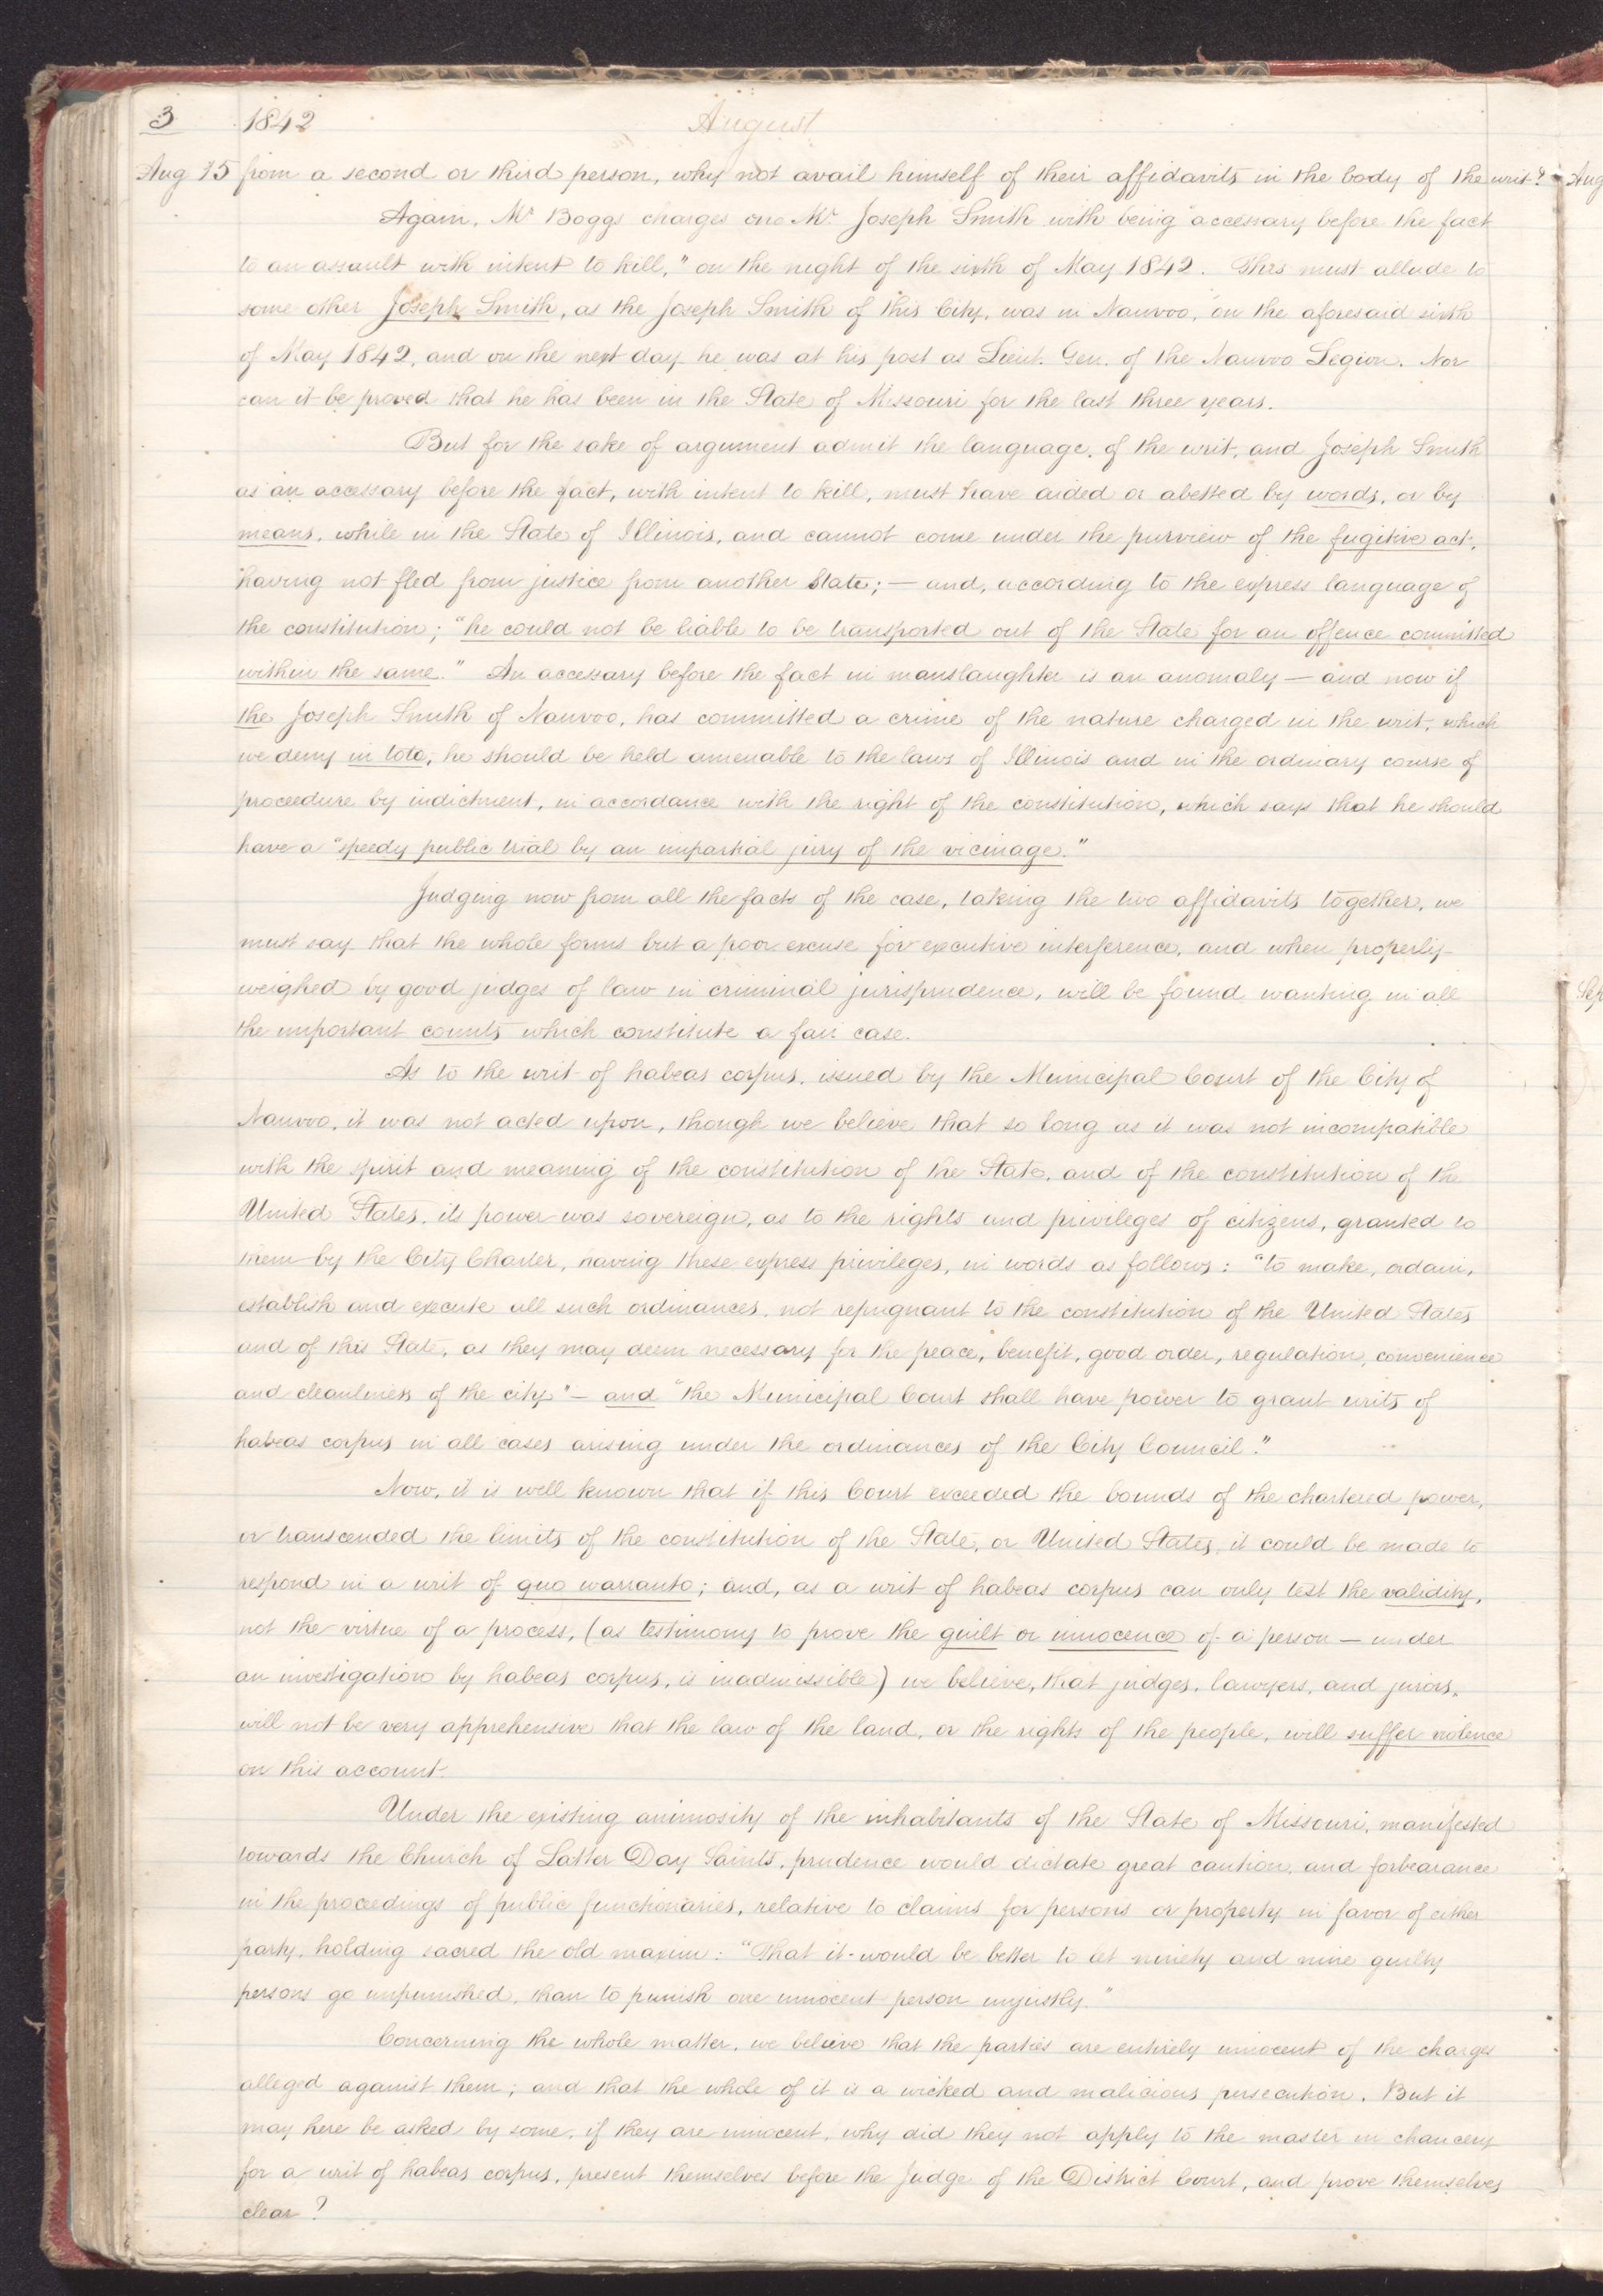 3 1842 August
Aug 15 from a second or third person, why not avail himself of their affidavits in the body of the writ? Aug
Again, Mr Boggs charges one Mr. Joseph Smith with being "accessary before the fact
to an assault with intent to kill," on the night of the sixth of May 1842. This must allude to
some other Joseph Smith, as the Joseph Smith of this City, was in Nauvoo, on the aforesaid sixth
of May 1842, and on the next day he was at his post as Lieut. Gen. of the Nauvoo Legion. Nor
can it be proved that he has been in the State of Missouri for the last three years.
But for the sake of argument admit the language, of the writ, and Joseph Smith
as an accessary before the fact, with intent to kill, must have aided or abetted by words, or by
means, while in the State of Illinois, and cannot come under the purview of the fugitive act,
having not fled from justice from another State; — and, according to the express language of
the constitution; "he could not be liable to be transported out of the State for an offence committed
within the same." An accessary before the fact in manslaughter is an anomaly — and now if
the Joseph Smith of Nauvoo, has committed a crime of the nature charged in the writ, which
we deny in toto, he should be held amenable to the laws of Illinois and in the ordinary course of
proceedure by indictment, in accordance with the right of the constitution, which says that he should
have a "speedy public trial by an impartial jury of the vicinage."
Judging now from all the facts of the case, taking the two affidavits together, we
must say that the whole forms but a poor excuse for executive interference, and when properly
weighed by good judges of law in criminal jurisprudence, will be found wanting in all
the important counts which constitute a fair case. Sep
As to the writ of habeas corpus, issued by the Municipal Court of the City of
Nauvoo, it was not acted upon, though we believe that so long as it was not incompatible
with the spirit and meaning of the constitution of the State, and of the constitution of the
United States, its power was sovereign, as to the rights and privileges of citizens, granted to
them by the City Charter, having these express privileges, in words as follows: "to make, ordain,
establish and execute all such ordinances, not repugnant to the constitution of the United States
and of this State, as they may deem necessary for the peace, benefit, good order, regulation, convenience
and cleanliness of the city" — and "the Municipal Court shall have power to grant writs of
habeas corpus in all cases arising under the ordinances of the City Council."
Now, it is well known that if this Court exceeded the bounds of the chartered power,
or transcended the limits of the constitution of the State, or United States, it could be made to
respond in a writ of quo warranto; and, as a writ of habeas corpus can only test the validity,
not the virtue of a process, (as testimony to prove the guilt or innocence of a person — under
an investigation by habeas corpus, is inadmissible) we believe, that judges, lawyers, and jurors,
will not be very apprehensive that the law of the land, or the rights of the people, will suffer violence
on this account.
Under the existing animosity of the inhabitants of the State of Missouri, manifested
towards the Church of Latter Day Saints, prudence would dictate great caution, and forbearance
in the proceedings of public functionaries, relative to claims for persons or property in favor of either
party, holding sacred the old maxim: "That it would be better to let ninety and nine guilty
persons go unpunished, than to punish one innocent person unjustly."
Concerning the whole matter, we believe that the parties are entirely innocent of the charges
alleged against them; and that the whole of it is a wicked and malicious persecution. But it
may here be asked by some, if they are innocent, why did they not apply to the master in chancery
for a writ of habeas corpus, present themselves before the Judge of the District Court, and prove themselves
clear?